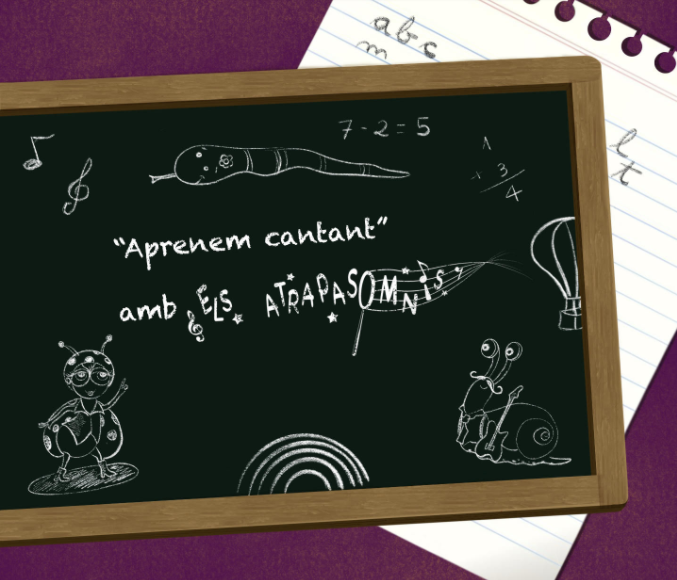 abc
m
l
t
7 - 2 = 5
1
+ 3
4
"Aprenem cantant"
amb ELS ATRAPASOMNIS